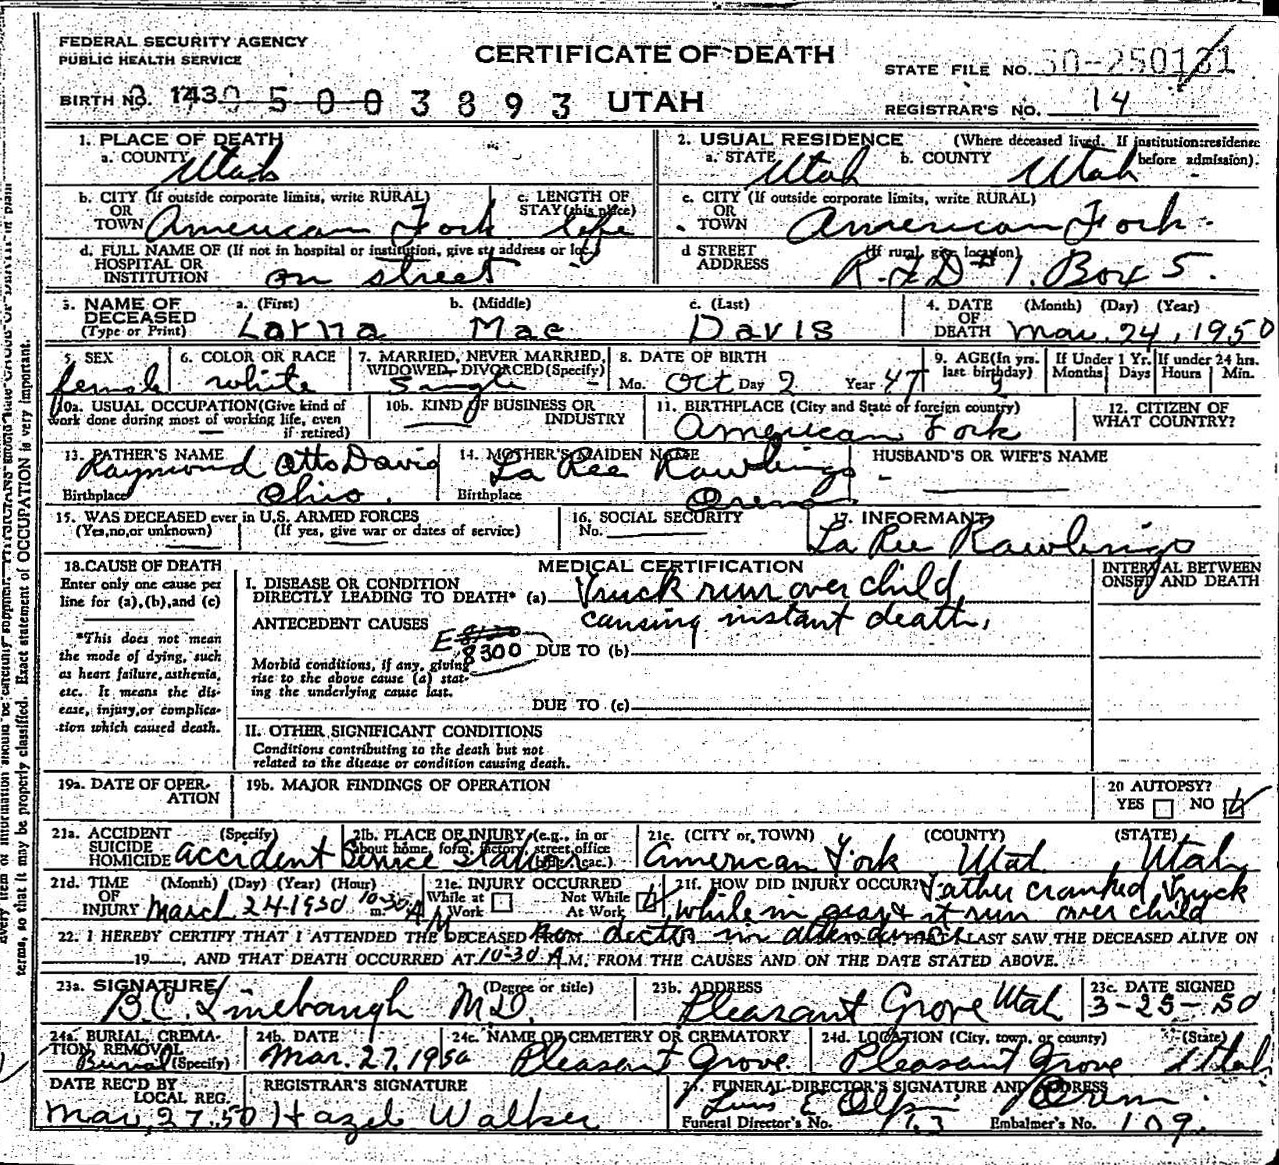 FEDERAL SECURITY AGENCY
PUBLIC HEALTH SERVICE
CERTIFICATE OF DEATH
STATE FILE NO. 50-250131
BIRTH NO. 143 0 5 0 0 3 8 9 3 UTAH
REGISTRAR'S NO. 14
1. PLACE OF DEATH
a. COUNTY Utah
2. USUAL RESIDENCE (Where deceased lived. If institution: residence before admission).
a. STATE Utah b. COUNTY Utah
b. CITY (If outside corporate limits, write RURAL) OR TOWN American Fork
c. LENGTH OF STAY (this place) life
c. CITY (If outside corporate limits, write RURAL) OR TOWN American Fork
d. FULL NAME OF (If not in hospital or institution, give st. address or loc.) HOSPITAL OR INSTITUTION on street
d STREET ADDRESS (If rural give location) R.F.D #1. Box 5.
3. NAME OF DECEASED (Type or Print)
a. (First) Larna b. (Middle) Mae c. (Last) Davis
4. DATE OF DEATH (Month) (Day) (Year) Mar. 24, 1950
5. SEX female
6. COLOR OR RACE white
7. MARRIED, NEVER MARRIED, WIDOWED, DIVORCED (Specify) single
8. DATE OF BIRTH Mo. Oct Day 2 Year 47
9. AGE (In yrs. last birthday) 2
If Under 1 Yr. Months Days
If under 24 hrs. Hours Min.
10a. USUAL OCCUPATION (Give kind of work done during most of working life, even if retired)
10b. KIND OF BUSINESS OR INDUSTRY
11. BIRTHPLACE (City and State or foreign country) American Fork
12. CITIZEN OF WHAT COUNTRY?
13. FATHER'S NAME Raymond Otto Davis
Birthplace Ohio.
14. MOTHER'S MAIDEN NAME La Ree Rawlings
Birthplace Orem
HUSBAND'S OR WIFE'S NAME
15. WAS DECEASED ever in U.S. ARMED FORCES (Yes, no, or unknown) (If yes, give war or dates of service)
16. SOCIAL SECURITY No.
17. INFORMANT La Ree Rawlings
18. CAUSE OF DEATH
Enter only one cause per line for (a), (b), and (c)
*This does not mean the mode of dying, such as heart failure, asthenia, etc. It means the disease, injury, or complication which caused death.
MEDICAL CERTIFICATION
INTERVAL BETWEEN ONSET AND DEATH
I. DISEASE OR CONDITION DIRECTLY LEADING TO DEATH* (a) Truck run over child, causing instant death,
ANTECEDENT CAUSES
E 8300 DUE TO (b)
Morbid conditions, if any, giving rise to the above cause (a) stating the underlying cause last.
DUE TO (c)
II. OTHER SIGNIFICANT CONDITIONS
Conditions contributing to the death but not related to the disease or condition causing death.
19a. DATE OF OPERATION
19b. MAJOR FINDINGS OF OPERATION
20 AUTOPSY?
YES NO
21a. ACCIDENT SUICIDE HOMICIDE (Specify) accident
21b. PLACE OF INJURY (e.g., in or about home, farm, factory, street, office bldg., etc.) Service Station
21c. (CITY or, TOWN) (COUNTY) (STATE)
American Fork Utah Utah
21d. TIME OF INJURY (Month) (Day) (Year) (Hour) March 24-1950 10-30 A m.
21e. INJURY OCCURRED While at Work Not While At Work
21f. HOW DID INJURY OCCUR? Father cranked Truck while in gear & it run over child
22. I HEREBY CERTIFY THAT I ATTENDED THE DECEASED FROM no doctor in attendance THAT I LAST SAW THE DECEASED ALIVE ON
19___, AND THAT DEATH OCCURRED AT 10-30 A M. FROM THE CAUSES AND ON THE DATE STATED ABOVE.
23a. SIGNATURE (Degree or title) B.C. Linebaugh M.D.
23b. ADDRESS Pleasant Grove Utah
23c. DATE SIGNED 3-25-50
24a. BURIAL, CREMATION, REMOVAL (Specify) Burial
24b. DATE Mar. 27, 1950
24c. NAME OF CEMETERY OR CREMATORY Pleasant Grove.
24d. LOCATION (City, town, or county) (State) Pleasant Grove Utah
DATE REC'D BY LOCAL REG. Mar, 27-50
REGISTRAR'S SIGNATURE Hazel Walker
25. FUNERAL DIRECTOR'S SIGNATURE AND ADDRESS Orem.
Funeral Director's No. 173 Embalmer's No. 109.
terms, so that it may be properly classified. Exact statement of OCCUPATION is very important.